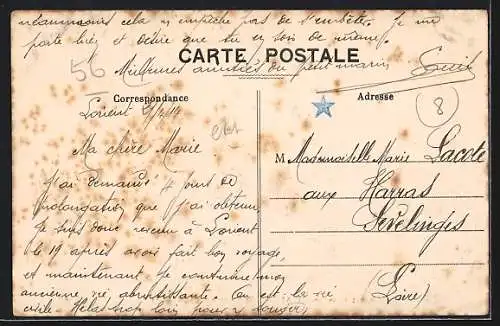 néanmoins cela n'empêche pas de s'embêter. Je me
porte bien et désire que tu en sois de même.
CARTE POSTALE
Meilleures amitiés du petit marin
Louis
56
Correspondance
Adresse
8
Lorient
Ma chère Marie
J'ai demandé 4 jours de
prolongation que j'ai obtenu
je suis donc revenu à Lorient
le 19 après avoir fait bon voyage
et maintenant je continue mon
ancienne vie abrutissante. On est
M Mademoiselle Marie Lacote
aux Harras
Sevelinges
(Loire)